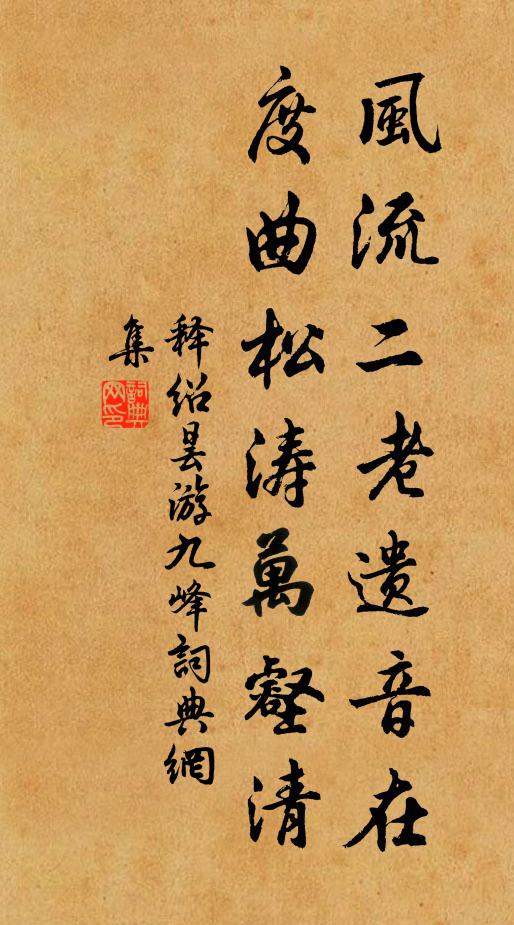 風流二老遗音在
度曲松涛萬壑清
释绍昙游九峰詞典網
集
詞典網印